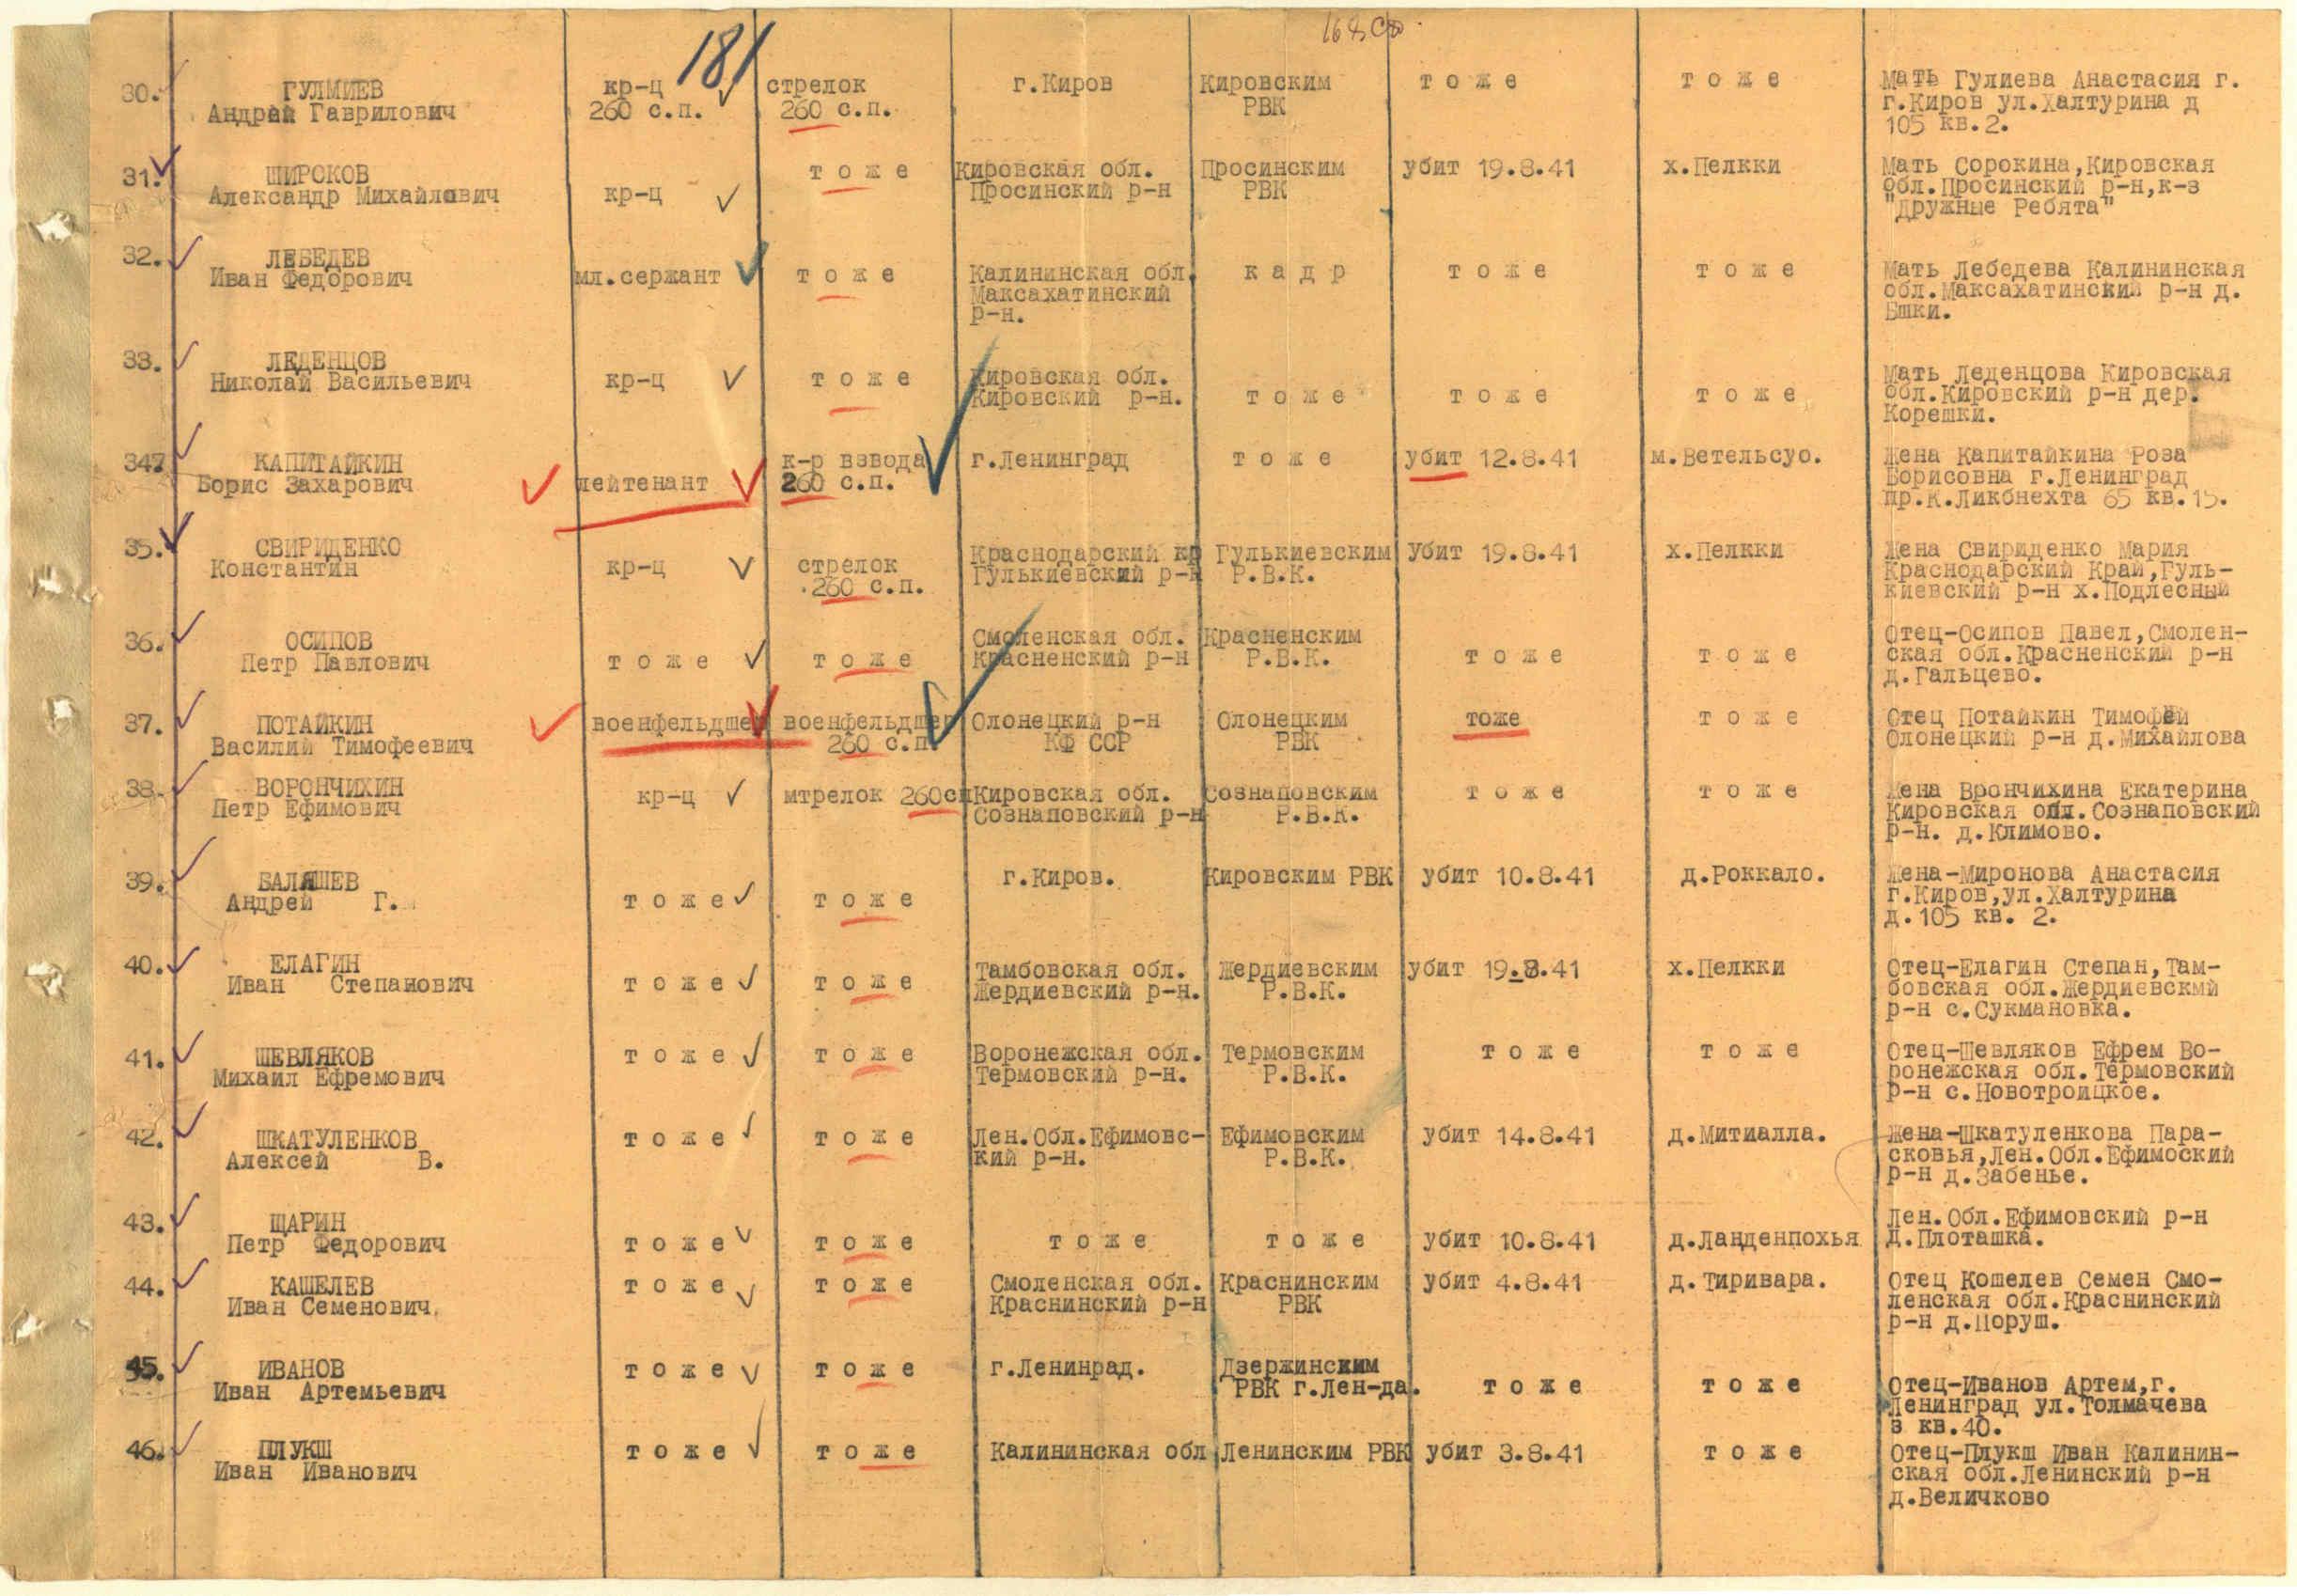 181
168 сд.
30.
ГУЛМИЕВ
Андрей Гаврилович
кр-ц
260 с.п.
стрелок
260 с.п.
г.Киров
Кировским
РВК
т о ж е
т о ж е
Мать Гулиева Анастасия г.
г.Киров ул.Халтурина д
105 кв.2.
31.
ШИРОКОВ
Александр Михайлович
кр-ц
т о ж е
Кировская обл.
Просинский р-н
Просинским
РВК
убит 19.8.41
х.Пелкки
Мать Сорокина,Кировская
обл.Просинский р-н,к-з
"Дружные Ребята"
32.
ЛЕБЕДЕВ
Иван Федорович
мл.сержант
т о ж е
Калининская обл.
Максахатинский
р-н.
к а д р
т о ж е
т о ж е
Мать Лебедева Калининская
обл.Максахатинский р-н д.
Ешки.
33.
ЛЕДЕНЦОВ
Николай Васильевич
кр-ц
т о ж е
Кировская обл.
Кировский р-н.
т о ж е
т о ж е
т о ж е
Мать Леденцова Кировская
обл.Кировский р-н дер.
Корешки.
34.
КАПИТАЙКИН
Борис Захарович
лейтенант
к-р взвода
260 с.п.
г.Ленинград
т о ж е
убит 12.8.41
м.Ветельсуо.
Жена Капитайкина Роза
Борисовна г.Ленинград
пр.К.Ликбнехта 65 кв.15.
35.
СВИРИДЕНКО
Константин
кр-ц
стрелок
.260 с.п.
Краснодарский кр
Гулькиевский р-н
Гулькиевским
Р.В.К.
убит 19.8.41
х.Пелкки
Жена Свириденко Мария
Краснодарский Край,Гуль-
киевский р-н х.Подлесный
36.
ОСИПОВ
Петр Павлович
т о ж е
т о ж е
Смоленская обл.
Красненский р-н
Красненским
Р.В.К.
т о ж е
т о ж е
Отец-Осипов Павел,Смолен-
ская обл.Красненский р-н
д.Гальцево.
37.
ПОТАЙКИН
Василий Тимофеевич
военфельдшер
военфельдшер
260 с.п.
Олонецкий р-н
КФ ССР
Олонецким
РВК
тоже
т о ж е
Отец Потайкин Тимофей
Олонецкий р-н д.Михайлова
38.
ВОРОНЧИХИН
Петр Ефимович
кр-ц
мтрелок 260сп
Кировская обл.
Сознаповский р-н
Сознаповским
Р.В.К.
т о ж е
т о ж е
Жена Врончихина Екатерина
Кировская обл.Сознаповский
р-н. д.Климово.
39.
БАЛЯШЕВ
Андрей Г.
т о ж е
т о ж е
г.Киров.
Кировским РВК
убит 10.8.41
д.Роккало.
Жена-Миронова Анастасия
г.Киров,ул.Халтурина
д.105 кв. 2.
40.
ЕЛАГИН
Иван Степанович
т о ж е
т о ж е
Тамбовская обл.
Жердиевский р-н.
Жердиевским
Р.В.К.
убит 19.8.41
х.Пелкки
Отец-Елагин Степан,Там-
бовская обл.Жердиевский
р-н с.Сукмановка.
41.
ШЕВЛЯКОВ
Михаил Ефремович
т о ж е
т о ж е
Воронежская обл.
Термовский р-н.
Термовским
Р.В.К.
т о ж е
т о ж е
Отец-Шевляков Ефрем Во-
ронежская обл.Термовский
р-н с.Новотроицкое.
42.
ШКАТУЛЕНКОВ
Алексей В.
т о ж е
т о ж е
Лен.Обл.Ефимовс-
кий р-н.
Ефимовским
Р.В.К.
убит 14.8.41
д.Митиалла.
Жена-Шкатуленкова Пара-
сковья,Лен.Обл.Ефимоский
р-н д.Забенье.
43.
ЩАРИН
Петр Федорович
т о ж е
т о ж е
т о ж е
т о ж е
убит 10.8.41
д.Ланденпохья
Лен.Обл.Ефимовский р-н
д.Плоташка.
44.
КАШЕЛЕВ
Иван Семенович.
т о ж е
т о ж е
Смоленская обл.
Краснинский р-н
Краснинским
РВК
убит 4.8.41
д.Тиривара.
Отец Кошелев Семен Смо-
ленская обл.Краснинский
р-н д.Поруш.
45.
ИВАНОВ
Иван Артемьевич
т о ж е
т о ж е
г.Ленинрад.
Дзержинским
РВК г.Лен-да.
т о ж е
т о ж е
Отец-Иванов Артем,г.
Ленинград ул.Толмачева
3 кв.40.
46.
ПЛУКШ
Иван Иванович
т о ж е
т о ж е
Калининская обл
Ленинским РВК
убит 3.8.41
т о ж е
Отец-Плукш Иван Калинин-
ская обл.Ленинский р-н
д.Величково